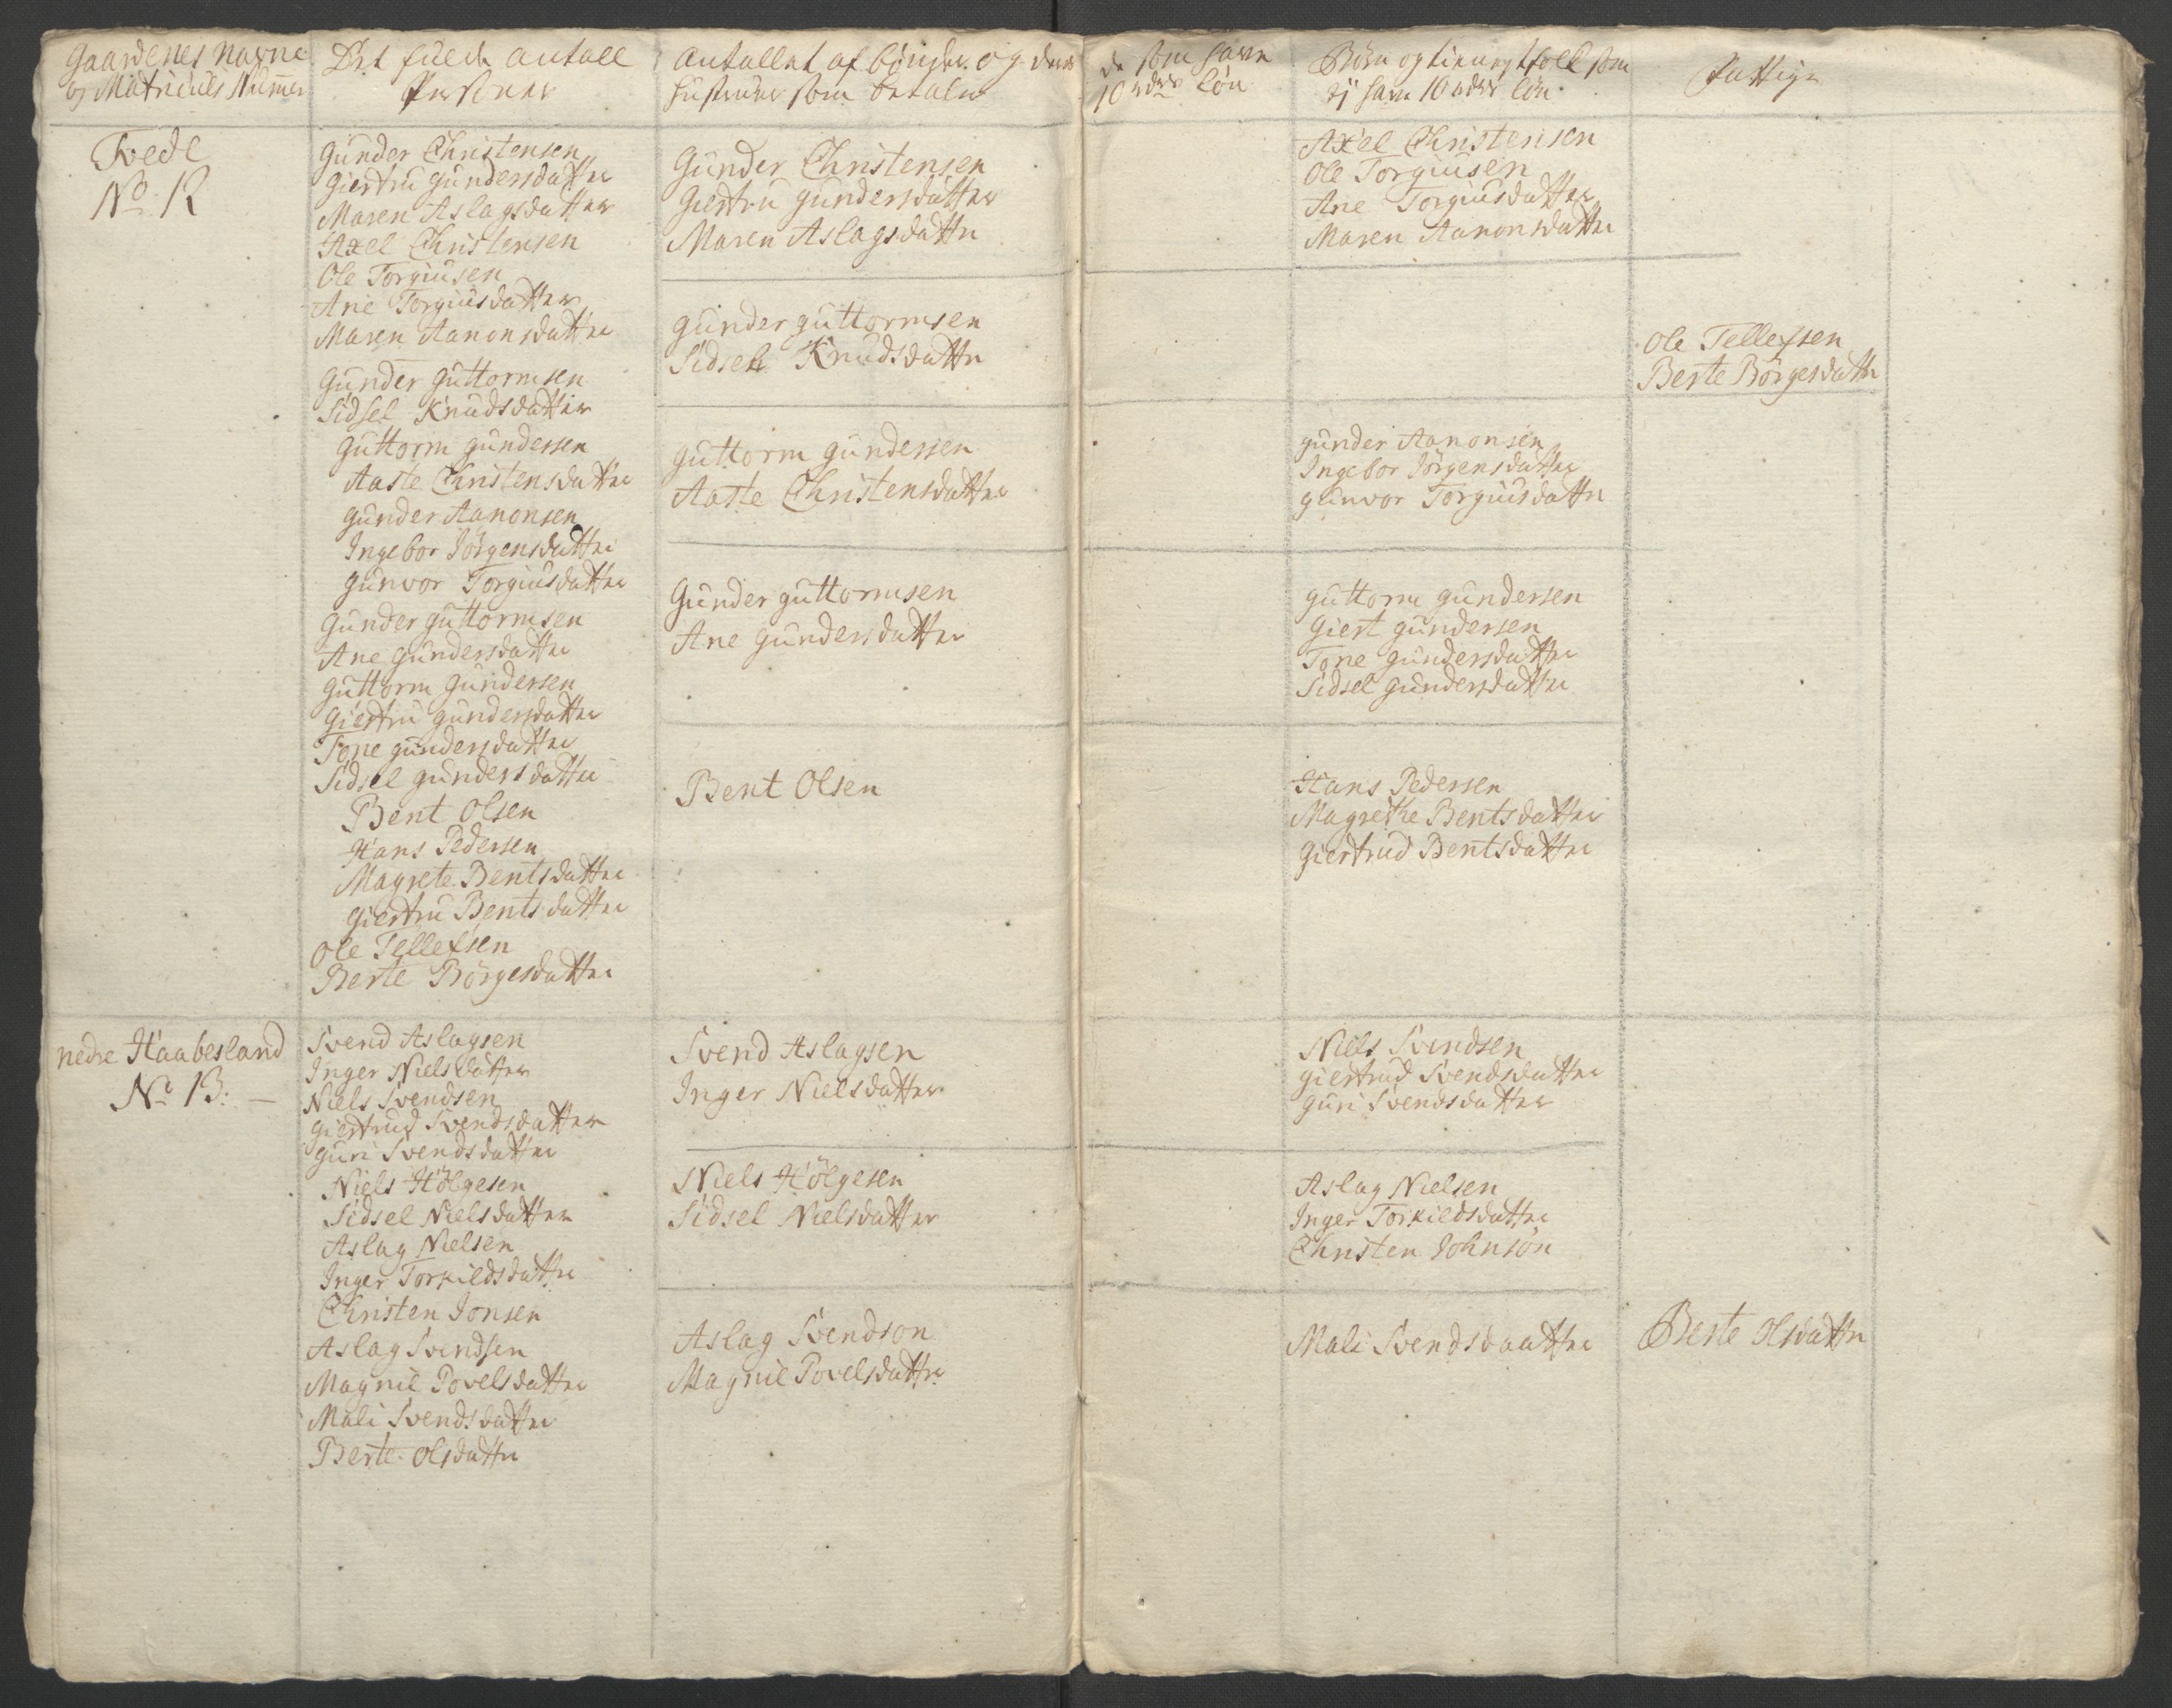 Gaardenes Navne
og Matriculs Nummer
Det fulde antall
Personer
Antallet af bönder og deres
hustruer som betaler
de som have
10 rdrs lön
Börn og tienestfolk som
ej have 10 rdrs lön
Fattige
Tvede
No 12
Gunder Christensen
Giertru Gundersdatter
Maren Aslagsdatter
Axel Christensen
Ole Torgiusen
Ane Torgiusdatter
Maren Aanonsdatter
Gunder Guttormsen
Sidsel Knudsdatter
Guttorm Gundersen
Aaste Christensdatter
Gunder Aanonsen
Ingebor Jörgensdatter
Gunvor Torgiusdatter
Gunder Guttormsen
Ane Gundersdatter
Guttorm Gundersen
Giertru Gundersdatter
Tone Gundersdatter
Sidsel Gundersdatter
Bent Olsen
Hans Pedersen
Magrete Bentsdatter
Giertru Bentsdatter
Ole Tellefsen
Berte Börgesdatter
Gunder Christensen
Giertru Gundersdatter
Maren Aslagsdatter
Gunder Guttormsen
Sidsel Knudsdatter
Guttorm Gundersen
Aaste Christensdatter
Gunder Guttormsen
Ane Gundersdatter
Bent Olsen
Axel Christensen
Ole Torgiusen
Ane Torgiusdatter
Maren Aanonsdatter
Gunder Aanonsen
Ingebor Jörgensdatter
Gunvor Torgiusdatter
Guttorm Gundersen
Giert Gundersen
Tone Gundersdatter
Sidsel Gundersdatter
Hans Pedersen
Magrethe Bentsdatter
Giertrud Bentsdatter
Ole Tellefsen
Berte Börgesdatter
nedre Haabesland
No 13: —
Svend Aslagsen
Inger Nielsdatter
Niels Svendsen
Giertrud Svendsdatter
Guri Svendsdatter
Niels Hölgesen
Sidsel Nielsdatter
Aslag Nielsen
Inger Torkildsdatter
Christen Jonsen
Aslag Svendsen
Magnil Povelsdatter
Mali Svendsdatter
Berte Olsdatter
Svend Aslagsen
Inger Nielsdatter
Niels Hölgesen
Sidsel Nielsdatter
Aslag Svendson
Magnil Povelsdatter
Niels Svendsen
Giertrud Svendsdatter
Guri Svendsdatter
Aslag Nielsen
Inger Torkildsdatter
Christen Johnsön
Mali Svendsdaatter
Berte Olsdatter